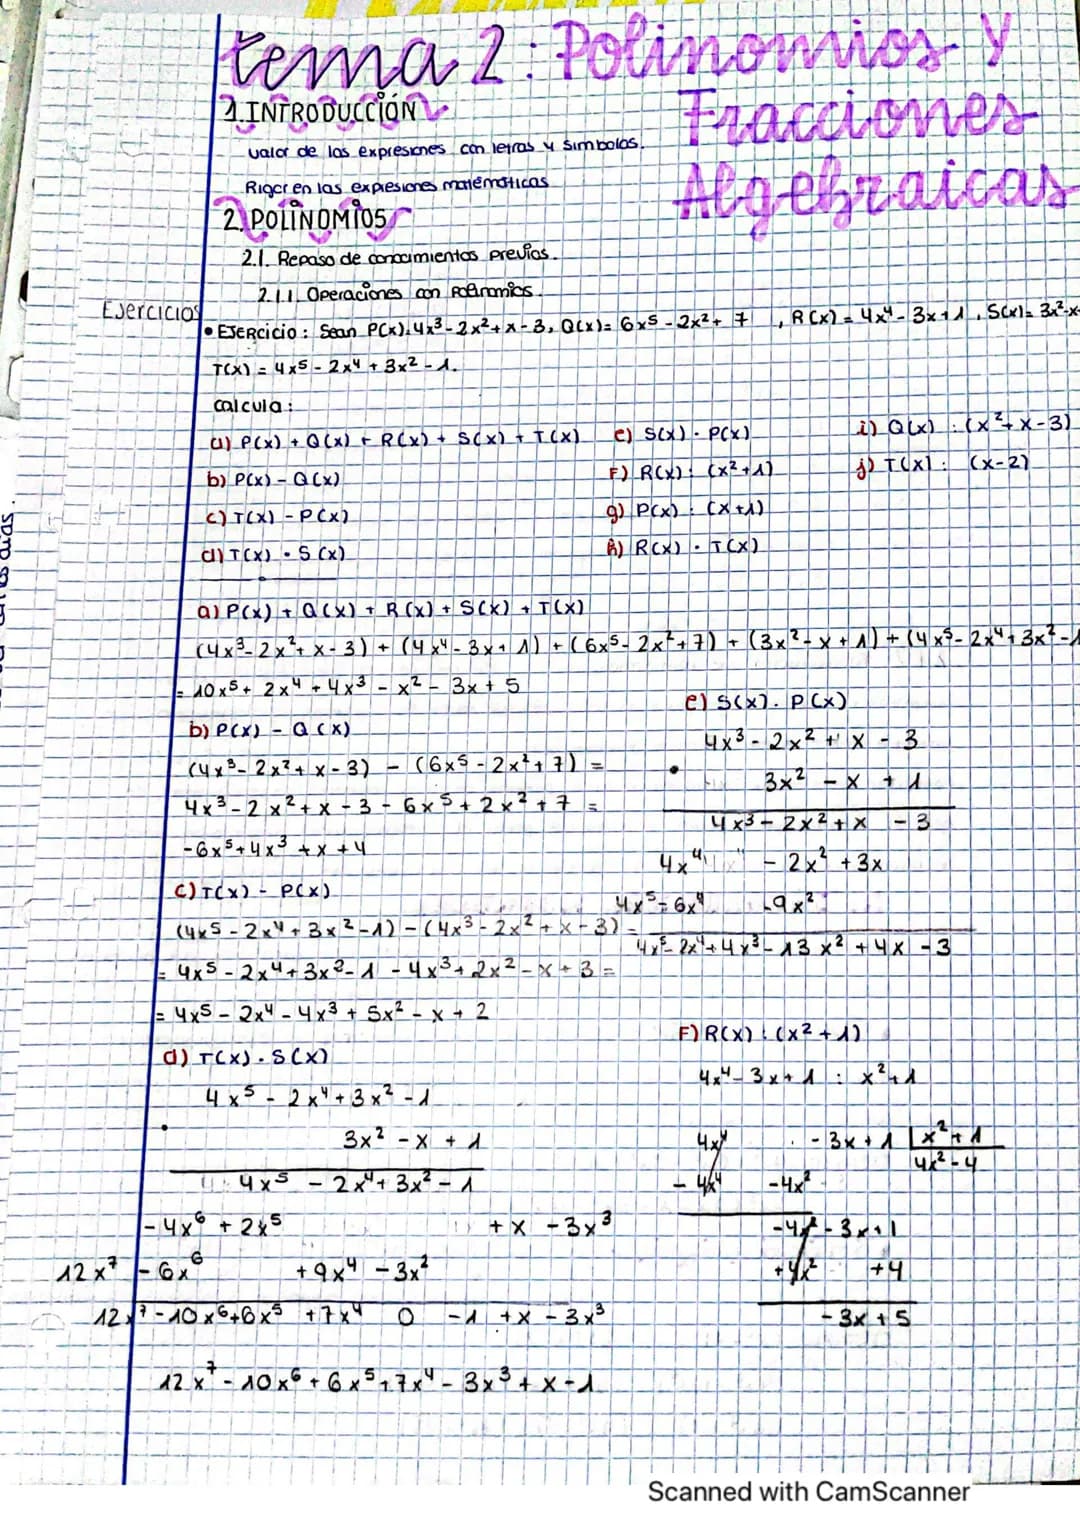 tema 2: Polinomios y
Fracciones
Algebraicas
1. INTRODUCCIÓN
valor de las expresiones con letras y simbolos.
Rigor en las expresiones matemáticas
2. POLINOMIOS
2.1. Repaso de conocimientos previos.
2.1.1. Operaciones con Polinomios.
Ejercicios
• EJERCICIO: Sean P(x)=4x³-2x²+x-3, Q(x)= 6x⁵-2x²+7, R(x)=4x⁴-3x+1, S(x)= 3x²-x+
T(x) = 4x⁵ - 2x⁴ + 3x² - 1.
calcula:
a) P(x) + Q(x) + R(x) + S(x) + T(x)
b) P(x) - Q(x)
c) T(x) - P(x)
d) T(x) · S(x)
e) S(x) · P(x)
F) R(x) : (x²+1)
g) P(x) : (x+1)
h) R(x) · T(x)
i) Q(x) : (x²+x-3)
j) T(x) : (x-2)
a) P(x) + Q(x) + R(x) + S(x) + T(x)
(4x³-2x²+x-3) + (4x⁴-3x+1) + (6x⁵-2x²+7) + (3x²-x+1) + (4x⁵-2x⁴+3x²-1
= 10x⁵ + 2x⁴ + 4x³ - x² - 3x + 5
b) P(x) - Q(x)
(4x³-2x²+x-3) - (6x⁵-2x²+7) =
4x³-2x²+x-3-6x⁵+2x²+7 =
-6x⁵+4x³+x+4
c) T(x) - P(x)
(4x⁵-2x⁴+3x²-1) - (4x³-2x²+x-3) =
= 4x⁵-2x⁴+3x²-1-4x³+2x²-x+3 =
= 4x⁵-2x⁴-4x³+5x²-x+2
d) T(x) · S(x)
4x⁵ - 2x⁴ + 3x² - 1
• 3x² - x + 1
4x⁵ - 2x⁴ + 3x² - 1
-4x⁶ + 2x⁵ + x - 3x³
12x⁷ - 6x⁶ + 9x⁴ - 3x²
12x⁷ - 10x⁶ + 6x⁵ + 7x⁴ 0 - 1 + x - 3x³
12x⁷ - 10x⁶ + 6x⁵ + 7x⁴ - 3x³ + x - 1
e) S(x) · P(x)
4x³ - 2x² + x - 3
• 3x² - x + 1
4x³ - 2x² + x - 3
4x⁴ - 2x² + 3x
4x⁵ - 6x⁴ - 9x²
4x⁵ - 2x⁴ + 4x³ - 13x² + 4x - 3
F) R(x) : (x²+1)
4x⁴ - 3x + 1 : x²+1
4x⁴ - 3x + 1 | x²+1
4x² - 4
- 4x⁴ - 4x²
-4x² - 3x + 1
+4x² + 4
- 3x + 5
Scanned with CamScanner